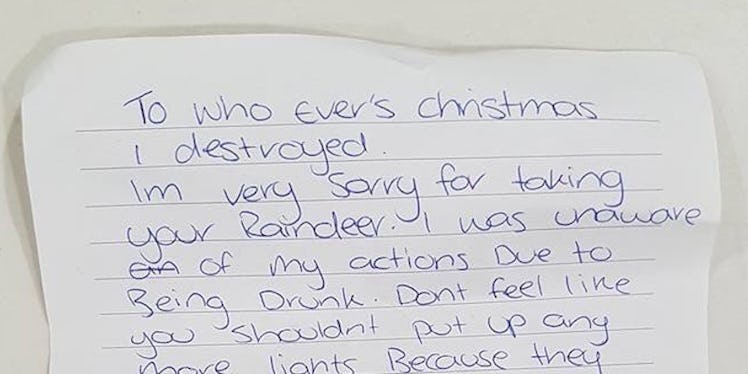 To who Ever's christmas
I destroyed.
Im very Sorry for taking
your Raindeer. I was unaware
of my actions Due to
Being Drunk. Dont feel like
you shouldnt put up any
more lights Because they